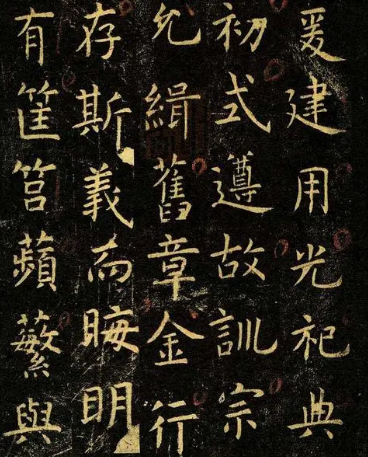 爰建用光祀典
初式遵故訓宗
允緝舊章金行
存斯義而晦明
有筐筥蘋蘩與